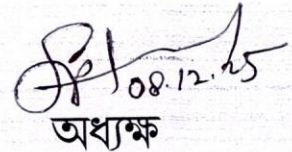 08.12.25
অধ্যক্ষ